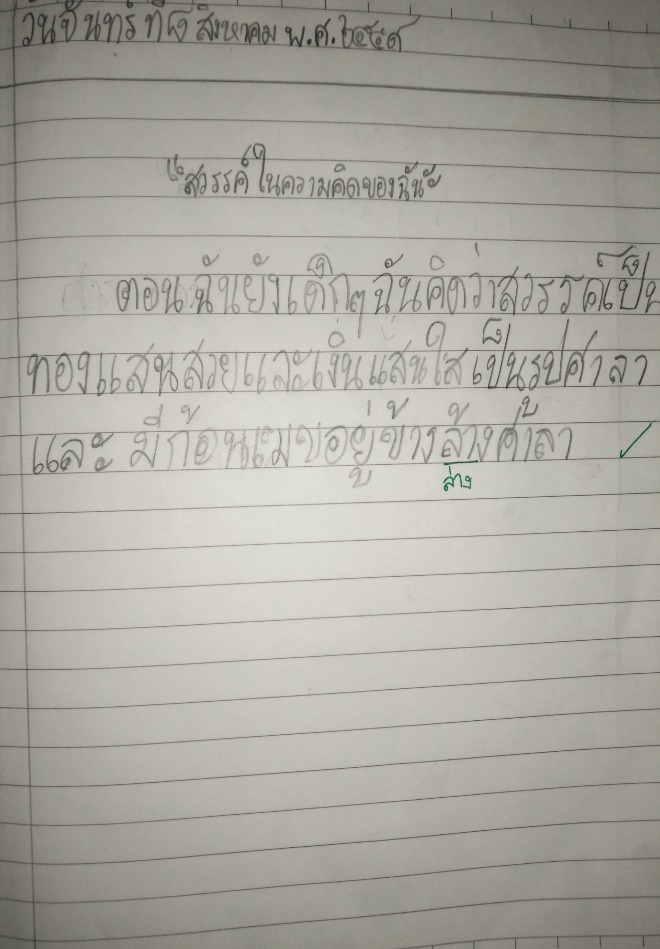 วันจันทร์ ที่๘ สิงหาคม พ.ศ.๒๕๕๙
"สวรรค์ ในความคิดของฉัน"
ตอน ฉันยังเด็กๆ ฉันคิดว่าสวรรค์เป็น
ทองแสนสวยและเงินแสนใส เป็นรูปศาลา
และ มีก้อนเมฆอยู่ข้างล้างศาลา
ล่าง